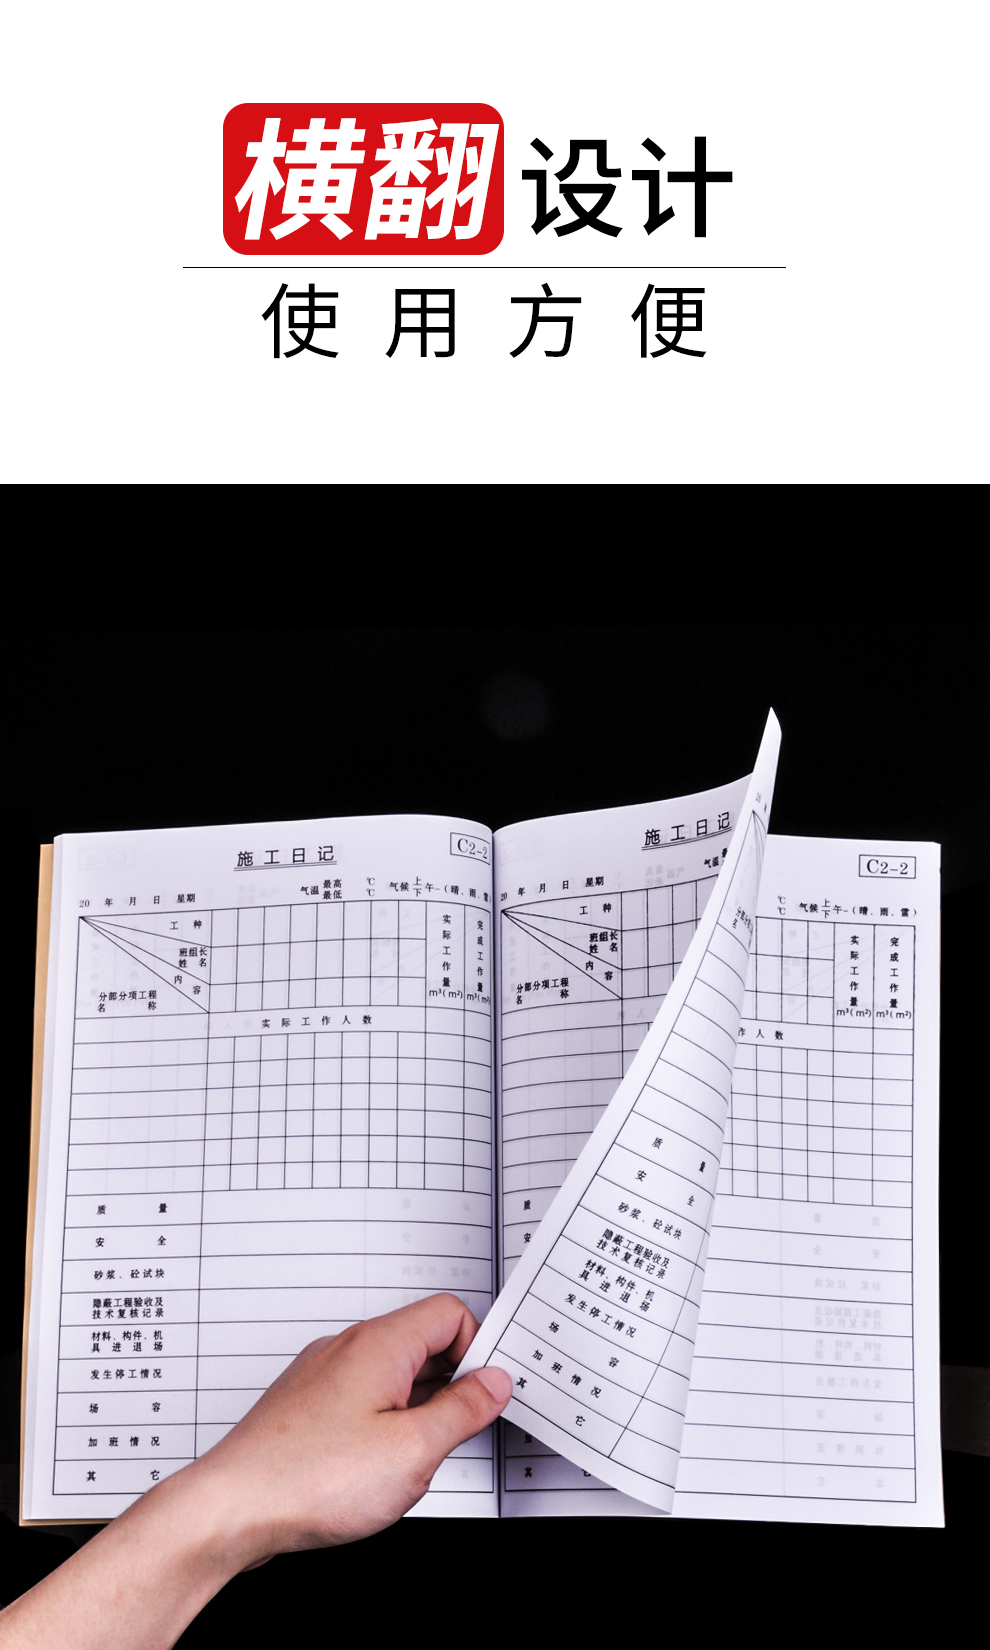 横翻设计
使用方便
施工日记
C2-2
20 年 月 日 星期 气温 最高 ℃ 最低 ℃ 气候 上 下 午-(晴、雨、雷)
工 种
班组长
姓 名
内 容
分部分项工程
名 称
实际工作量 m³(m²)
完成工作量 m³(m²)
实际工作人数
质 量
安 全
砂浆、砼试块
隐蔽工程验收及
技术复核记录
材料、构件、机
具 进 退 场
发生停工情况
场 容
加班情况
其 它
施工日记
20 年 月 日 星期 气温
工 种
班组长
姓 名
内 容
分部分项工程
名 称
质
安
其
质 量
安 全
砂浆、砼试块
隐蔽工程验收及
技术复核记录
材料、构件、机
具 进 退 场
发生停工情况
场 容
加班情况
其 它
C2-2
℃ ℃ 气候 上 下 午-(晴、雨、雷)
实际工作量 m³(m²)
完成工作量 m³(m²)
作人数